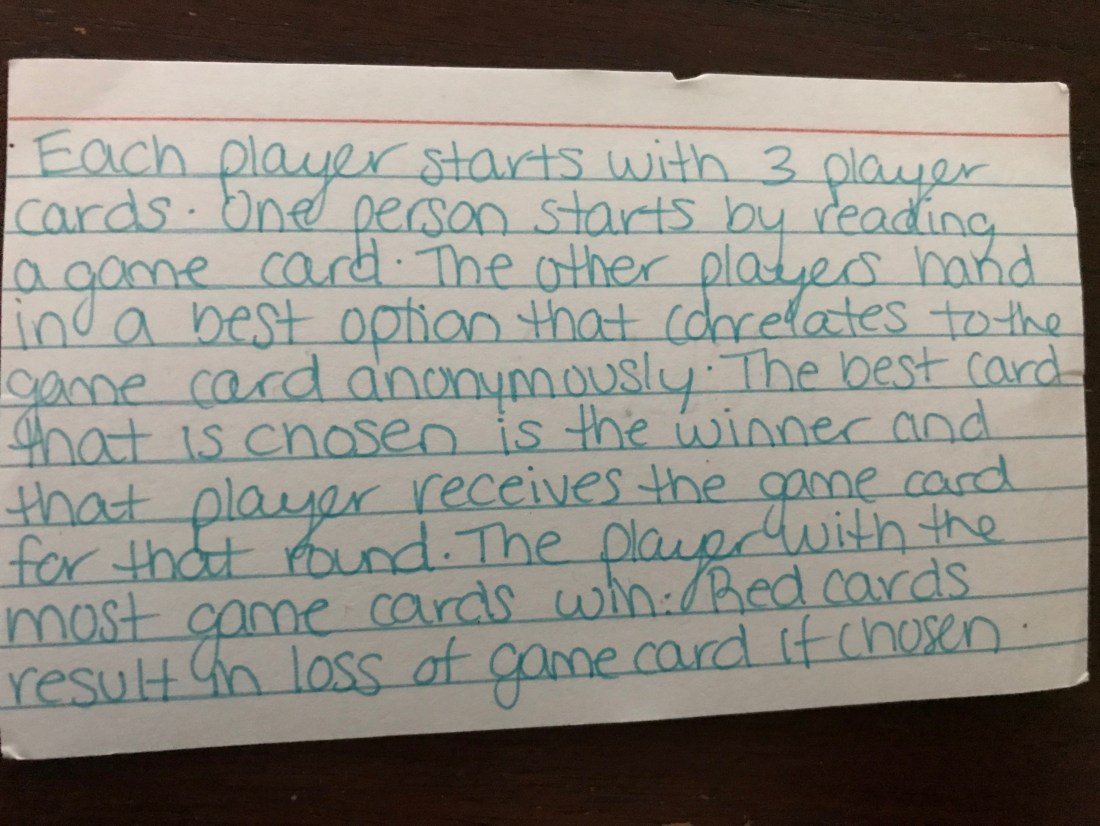 Each player starts with 3 player
cards. One person starts by reading
a game card. The other players hand
in a best option that correlates to the
game card anonymously. The best card
that is chosen is the winner and
that player receives the game card
for that round. The player with the
most game cards win. Red cards
result in loss of game card if chosen.